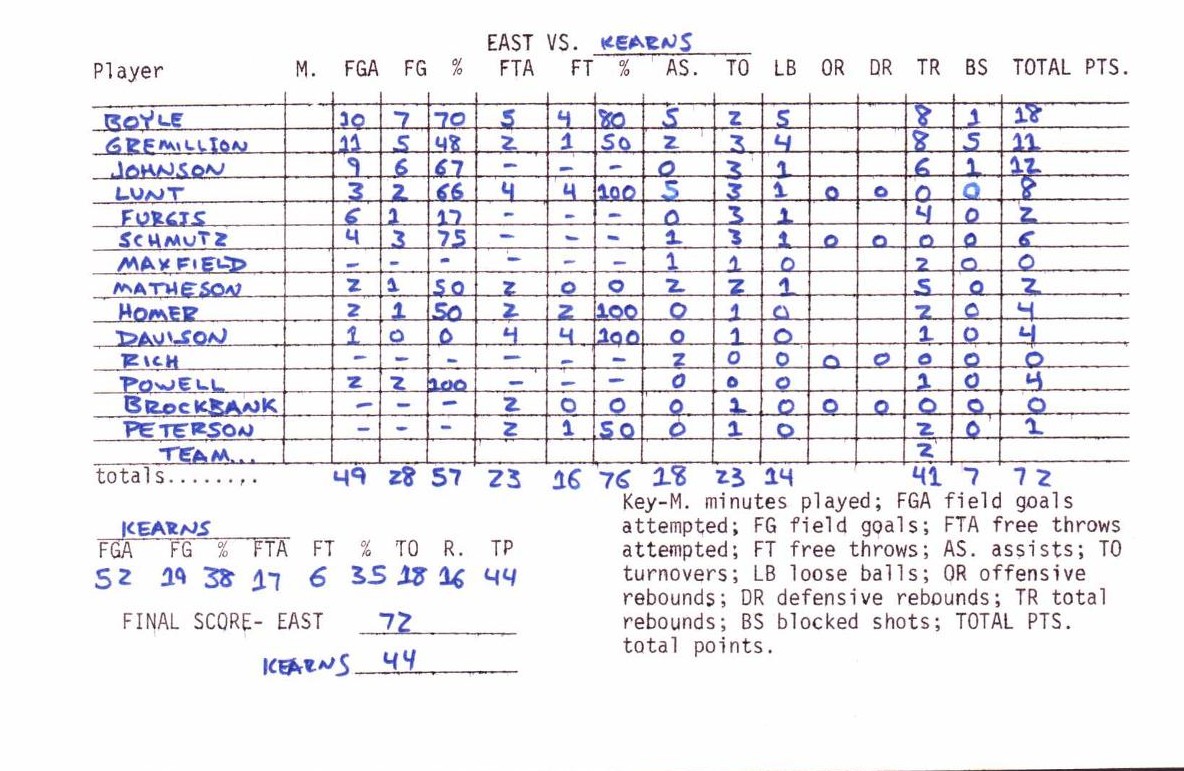 EAST VS. KEARNS
Player M. FGA FG % FTA FT % AS. TO LB OR DR TR BS TOTAL PTS.
BOYLE 10 7 70 5 4 80 5 2 5 8 1 18
GREMILLION 11 5 48 2 1 50 2 3 4 8 5 11
JOHNSON 9 6 67 - - - 0 3 1 6 1 12
LUNT 3 2 66 4 4 100 5 3 1 0 0 0 0 8
FURGIS 6 1 17 - - - 0 3 1 4 0 2
SCHMUTZ 4 3 75 - - - 1 3 1 0 0 0 0 6
MAXFIELD - - - - - - 1 1 0 2 0 0
MATHESON 2 1 50 2 0 0 2 2 1 5 0 2
HOMER 2 1 50 2 2 100 0 1 0 2 0 4
DAVISON 1 0 0 4 4 100 0 1 0 1 0 4
RICH - - - - - - 2 0 0 0 0 0 0 0
POWELL 2 2 100 - - - 0 0 0 1 0 4
BROCKBANK - - - 2 0 0 0 1 0 0 0 0 0 0
PETERSON - - - 2 1 50 0 1 0 2 0 1
TEAM... 2
totals........ 49 28 57 23 16 76 18 23 14 41 7 72
Key-M. minutes played; FGA field goals
attempted; FG field goals; FTA free throws
attempted; FT free throws; AS. assists; TO
turnovers; LB loose balls; OR offensive
rebounds; DR defensive rebounds; TR total
rebounds; BS blocked shots; TOTAL PTS.
total points.
KEARNS
FGA FG % FTA FT % TO R. TP
52 19 38 17 6 35 18 16 44
FINAL SCORE- EAST 72
KEARNS 44